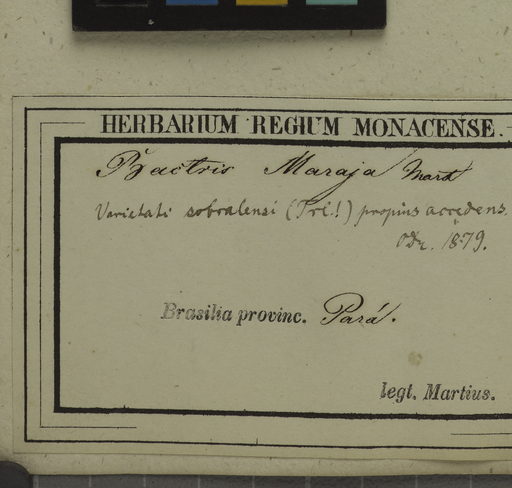 HERBARIUM REGIUM MONACENSE.
Bactris Maraja Mart
Varietati sobralensi (Trl.!) propius accedens.
ODr. 1879.
Brasilia provinc. Pará.
legt. Martius.